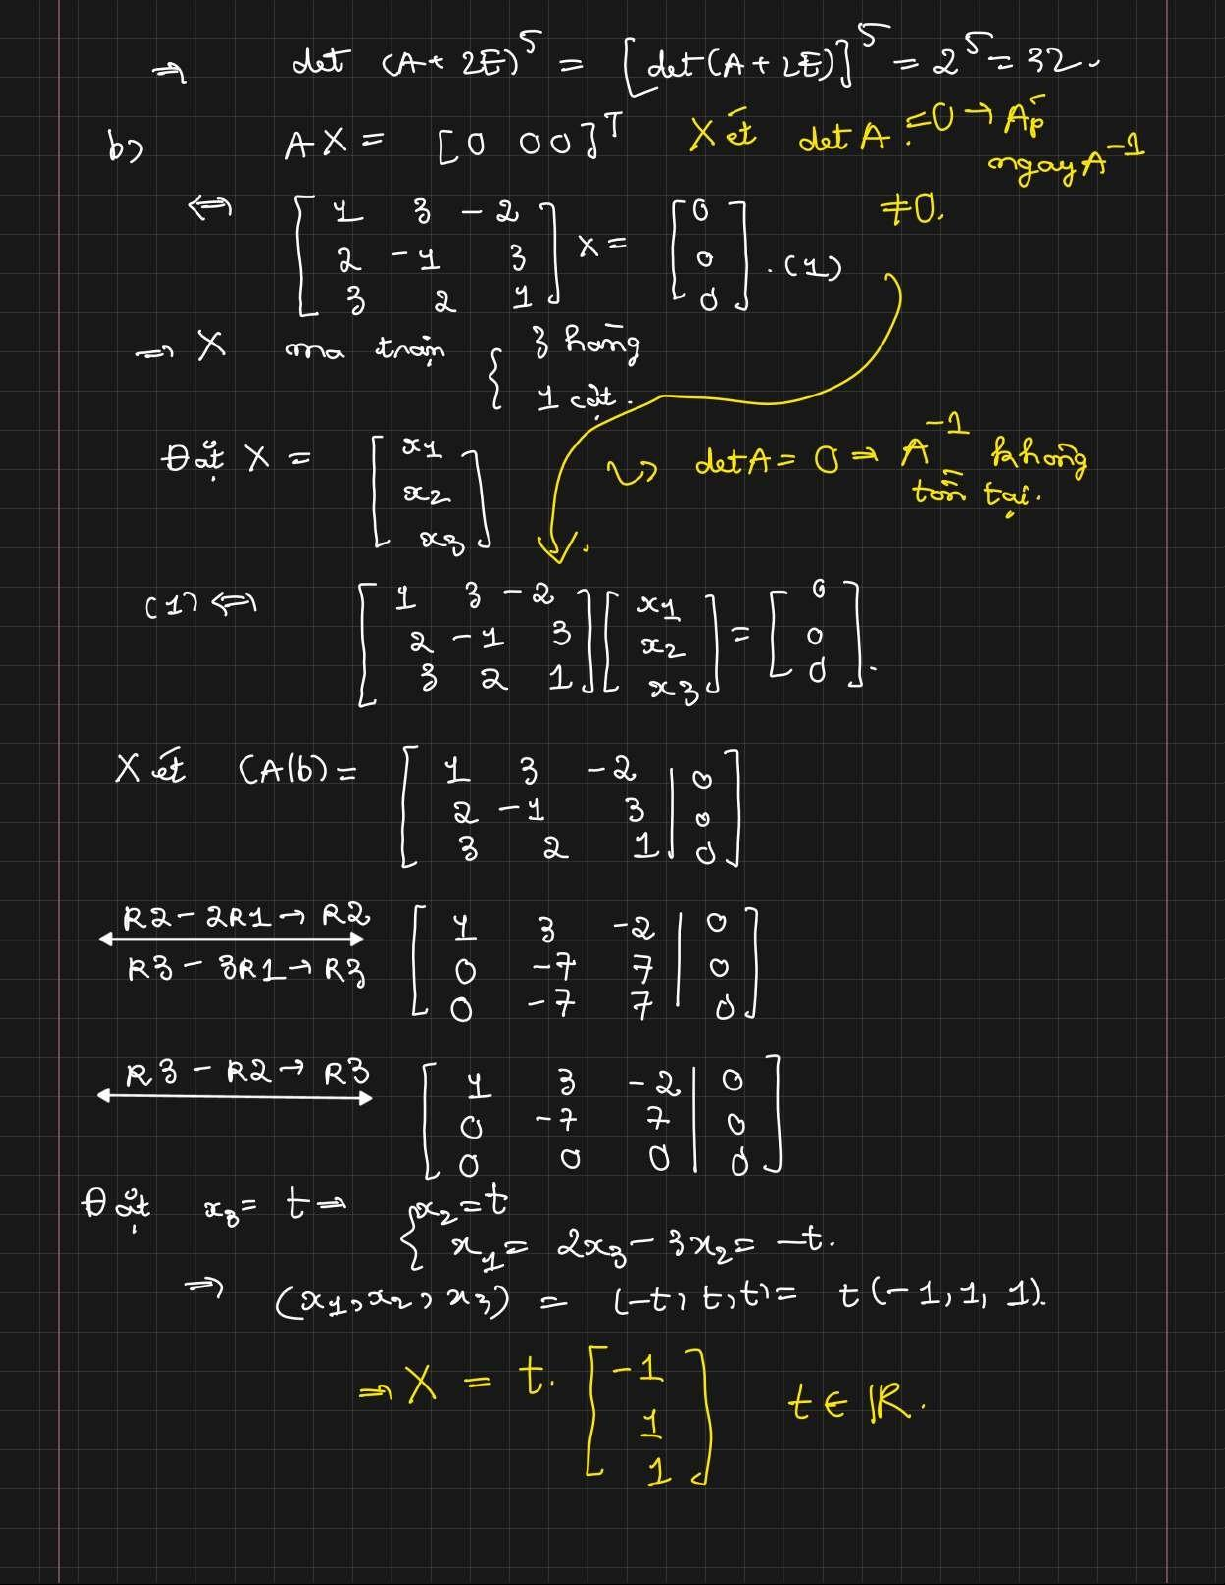 ⇒ det (A + 2E)^5 = [det(A + 2E)]^5 = 2^5 = 32.
b) AX = [0 0 0]^T Xét det A ≠ 0 → Áp
ngay A^-1
≠0.
⇔ [1 3 -2
2 -1 3
3 2 1] X = [0
0
0]. (1)
⇒ X ma trận { 3 hàng
1 cột.
Đặt X = [x1
x2
x3]
↪ det A = 0 ⇒ A^-1 không
tồn tại.
(1) ⇔ [1 3 -2
2 -1 3
3 2 1] [x1
x2
x3] = [0
0
0].
Xét (A|b) = [1 3 -2 | 0
2 -1 3 | 0
3 2 1 | 0]
R2 - 2R1 → R2
R3 - 3R1 → R3
[1 3 -2 | 0
0 -7 7 | 0
0 -7 7 | 0]
R3 - R2 → R3
[1 3 -2 | 0
0 -7 7 | 0
0 0 0 | 0]
Đặt x3 = t ⇒ { x2 = t
x1 = 2x3 - 3x2 = -t.
⇒ (x1, x2, x3) = (-t, t, t) = t(-1, 1, 1).
⇒ X = t. [-1
1
1] t ∈ ℝ.